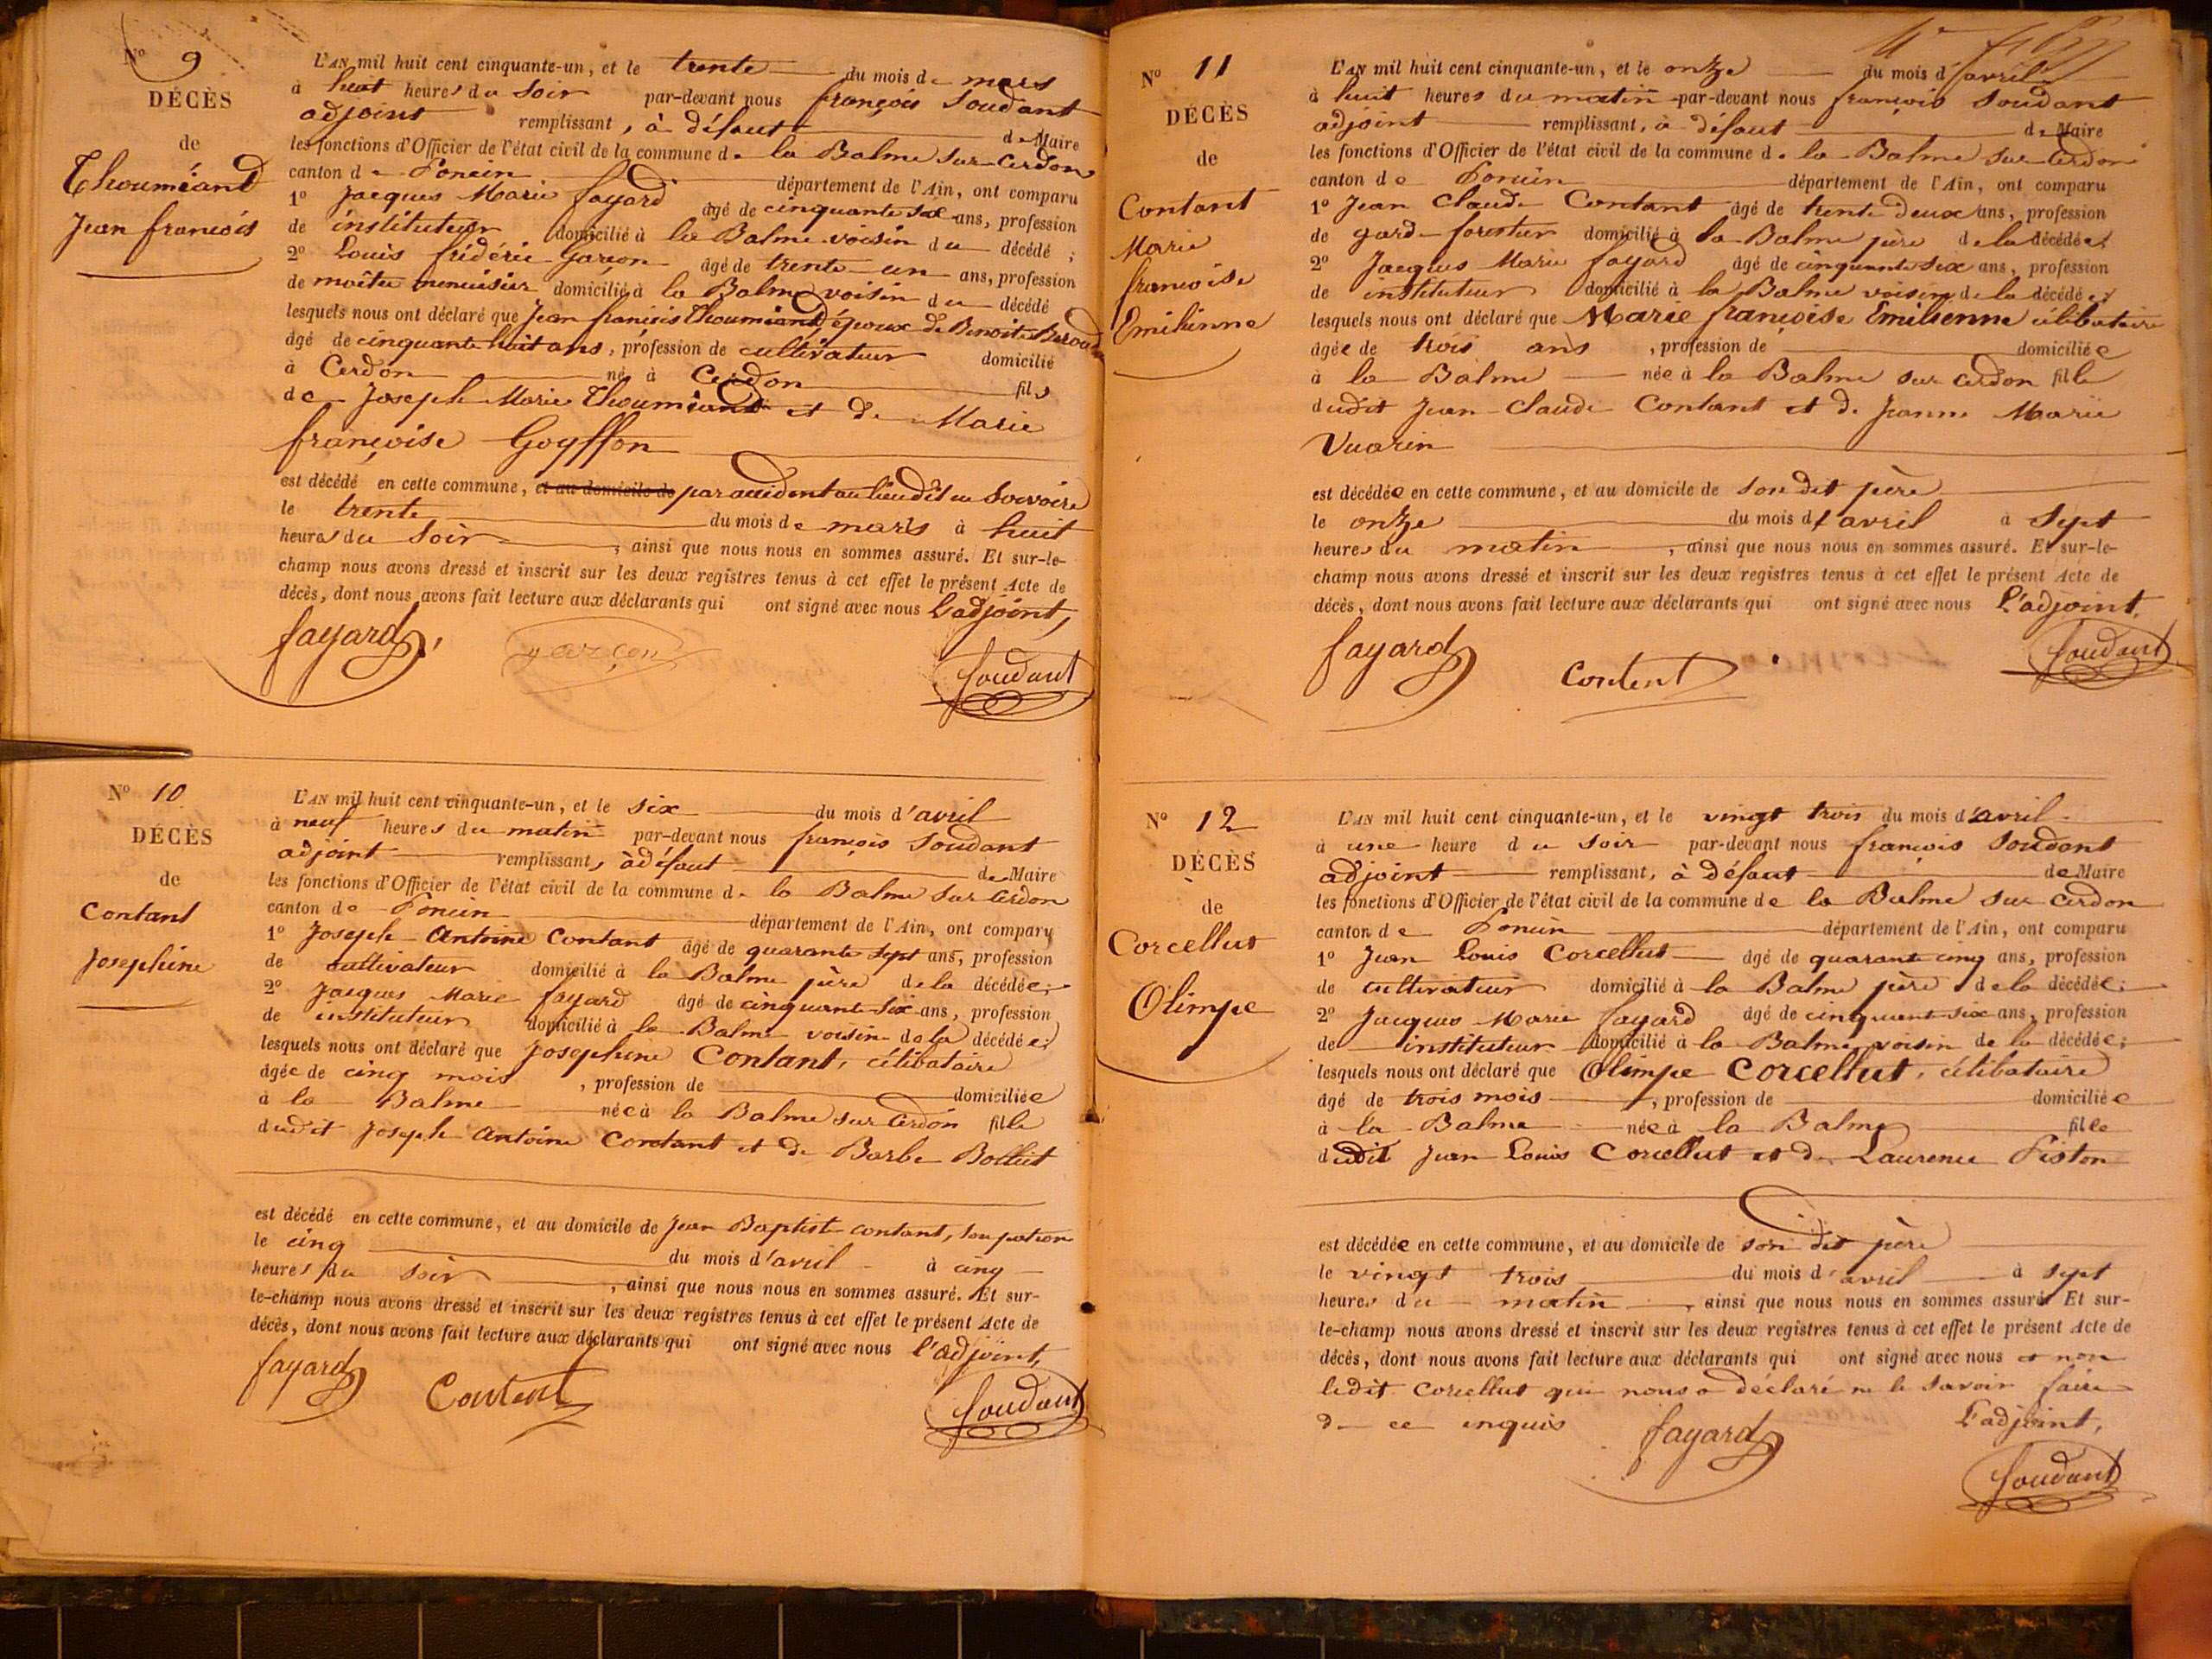 Nº 9
DÉCÈS
de
Thouméand
Jean françois
L'AN mil huit cent cinquante-un, et le trente du mois de mars
à huit heures du soir par-devant nous françois Soudant
adjoint remplissant, à défaut de Maire
les fonctions d'Officier de l'état civil de la commune de la Balme sur Cerdon
canton de Poncin département de l'Ain, ont comparu
1º Jacques Marie fayard âgé de cinquante six ans, profession
de instituteur domicilié à la Balme voisin du décédé ;
2º Louis frédéric garçon âgé de trente un ans, profession
de maître menuisier domicilié à la Balme voisin du décédé
lesquels nous ont déclaré que Jean françois Thouméand, époux de Benoite
âgé de cinquante huit ans, profession de cultivateur domicilié
à Cerdon né à Cerdon fils
de Joseph Marie Thouméand et de Marie
françoise Goyffon
est décédé en cette commune, et au domicile de par accident au lieu dit en
le trente du mois de mars à huit
heures du soir, ainsi que nous nous en sommes assuré. Et sur-le-
champ nous avons dressé et inscrit sur les deux registres tenus à cet effet le présent Acte de
décès, dont nous avons fait lecture aux déclarants qui ont signé avec nous L'adjoint,
fayard garçon Soudant
Nº 10
DÉCÈS
de
Contant
Josephine
L'AN mil huit cent cinquante-un, et le six du mois d'avril
à neuf heures du matin par-devant nous françois Soudant
adjoint remplissant, à défaut de Maire
les fonctions d'Officier de l'état civil de la commune de la Balme sur Cerdon
canton de Poncin département de l'Ain, ont comparu
1º Joseph Antoine Contant âgé de quarante sept ans, profession
de cultivateur domicilié à la Balme père de la décédée ;
2º Jacques Marie fayard âgé de cinquante six ans, profession
de instituteur domicilié à la Balme voisin de la décédée ;
lesquels nous ont déclaré que Josephine Contant, célibataire
âgée de cinq mois, profession de domiciliée
à la Balme née à la Balme sur Cerdon fille
dudit Joseph Antoine Contant et de Barbe Bolliet
est décédé en cette commune, et au domicile de Jean Baptiste Contant, son
le cinq du mois d'avril à cinq
heures du soir, ainsi que nous nous en sommes assuré. Et sur-
le-champ nous avons dressé et inscrit sur les deux registres tenus à cet effet le présent Acte de
décès, dont nous avons fait lecture aux déclarants qui ont signé avec nous l'adjoint,
fayard Contant Soudant
Nº 11
DÉCÈS
de
Contant
Marie
françoise
Emilienne
L'AN mil huit cent cinquante-un, et le onze du mois d'avril
à huit heures du matin par-devant nous françois Soudant
adjoint remplissant, à défaut de Maire
les fonctions d'Officier de l'état civil de la commune de la Balme sur Cerdon
canton de Poncin département de l'Ain, ont comparu
1º Jean Claude Contant âgé de trente deux ans, profession
de garde forestier domicilié à la Balme père de la décédée ;
2º Jacques Marie fayard âgé de cinquante six ans, profession
de instituteur domicilié à la Balme voisin de la décédée ;
lesquels nous ont déclaré que Marie françoise Emilienne célibataire
âgée de trois ans, profession de domiciliée
à la Balme née à la Balme sur Cerdon fille
dudit Jean Claude Contant et de Jeanne Marie
Vuarin
est décédée en cette commune, et au domicile de son dit père
le onze du mois d'avril à sept
heures du matin, ainsi que nous nous en sommes assuré. Et sur-le-
champ nous avons dressé et inscrit sur les deux registres tenus à cet effet le présent Acte de
décès, dont nous avons fait lecture aux déclarants qui ont signé avec nous L'adjoint,
fayard Contant Soudant
Nº 12
DÉCÈS
de
Corcellut
Olimpe
L'AN mil huit cent cinquante-un, et le vingt trois du mois d'avril
à une heure du soir par-devant nous françois Soudant
adjoint remplissant, à défaut de Maire
les fonctions d'Officier de l'état civil de la commune de la Balme sur Cerdon
canton de Poncin département de l'Ain, ont comparu
1º Jean Louis Corcellut âgé de quarante cinq ans, profession
de cultivateur domicilié à la Balme père de la décédée ;
2º Jacques Marie fayard âgé de cinquante six ans, profession
de instituteur domicilié à la Balme voisin de la décédée ;
lesquels nous ont déclaré que Olimpe Corcellut, célibataire
âgé de trois mois, profession de domiciliée
à la Balme née à la Balme fille
dudit Jean Louis Corcellut et de Laurence Piston
est décédée en cette commune, et au domicile de son dit père
le vingt trois du mois d'avril à sept
heures du matin, ainsi que nous nous en sommes assuré. Et sur-
le-champ nous avons dressé et inscrit sur les deux registres tenus à cet effet le présent Acte de
décès, dont nous avons fait lecture aux déclarants qui ont signé avec nous et non
ledit Corcellut qui nous a déclaré ne le savoir faire
de ce enquis fayard L'adjoint,
Soudant